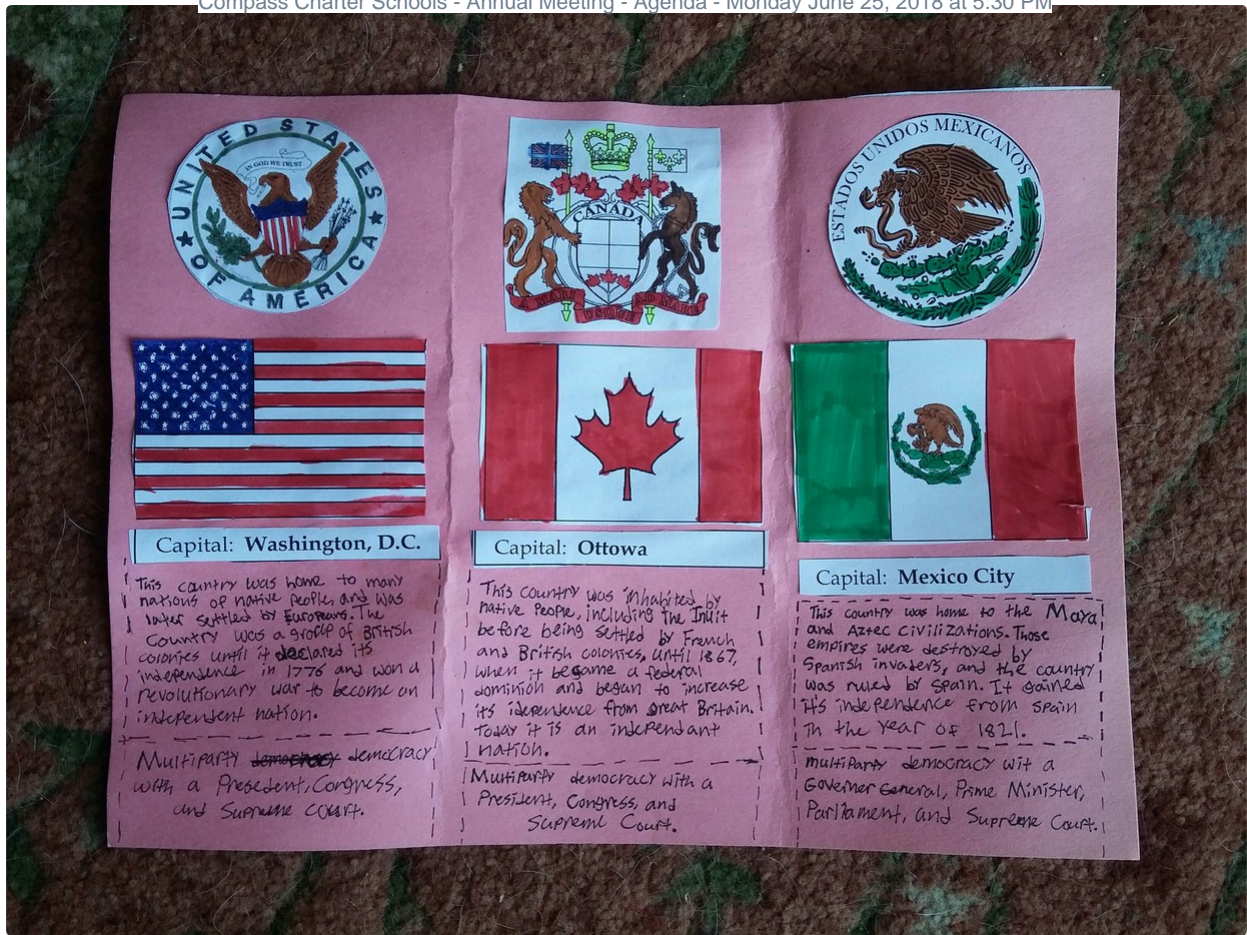 Compass Charter Schools - Annual Meeting - Agenda - Monday June 25, 2018 at 5:30 PM
UNITED STATES
OF AMERICA
IN GOD WE TRUST
Capital: Washington, D.C.
This country was home to many
nations of native peoples and was
later settled by Europeans. The
country was a group of British
colonies until it declared its
independence in 1776 and won a
revolutionary war to become an
independent nation.
Multiparty democracy democracy
with a Presedent, Congress,
and Supreme Court.
CANADA
A MARI
USQUE
AD MARE
Capital: Ottowa
This country was inhabited by
native people, including the Inuit
before being settled by French
and British colonies, until 1867,
when it became a federal
dominion and began to increase
its idependence from great Britain.
Today it is an independant
nation.
Multiparty democracy with a
President, Congress, and
Supreme Court.
ESTADOS UNIDOS MEXICANOS
Capital: Mexico City
This country was home to the Maya
and Aztec civilizations. Those
empires were destroyed by
Spanish invaders, and the country
was ruled by Spain. It gained
it's independence from Spain
in the year of 1821.
multiparty democracy wit a
Governer General, Prime Minister,
Parliament, and Supreme Court.